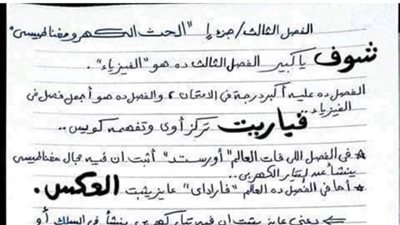 الفصل الثالث / جزء 1 "الحث الكهرومغناطيسى"
شوف يا كبير الفصل الثالث ده هو "الفيزياء".
الفصل ده عليه أكبر درجة فى الامتحان، والفصل ده هو أجمل فصل فى
الفيزياء..
فياريت تركز أوى وتفهمه كويس..
* فى الفصل اللى فات العالم "أورستد" أثبت ان فيه مجال مغناطيسى
ينشأ عند التيار الكهربى..
* أما فى الفصل ده العالم "فاراداى" عايز يثبت العكس.
يعنى عايز يثبت ان فيه تيار كهربى ينشأ فى السلك أو